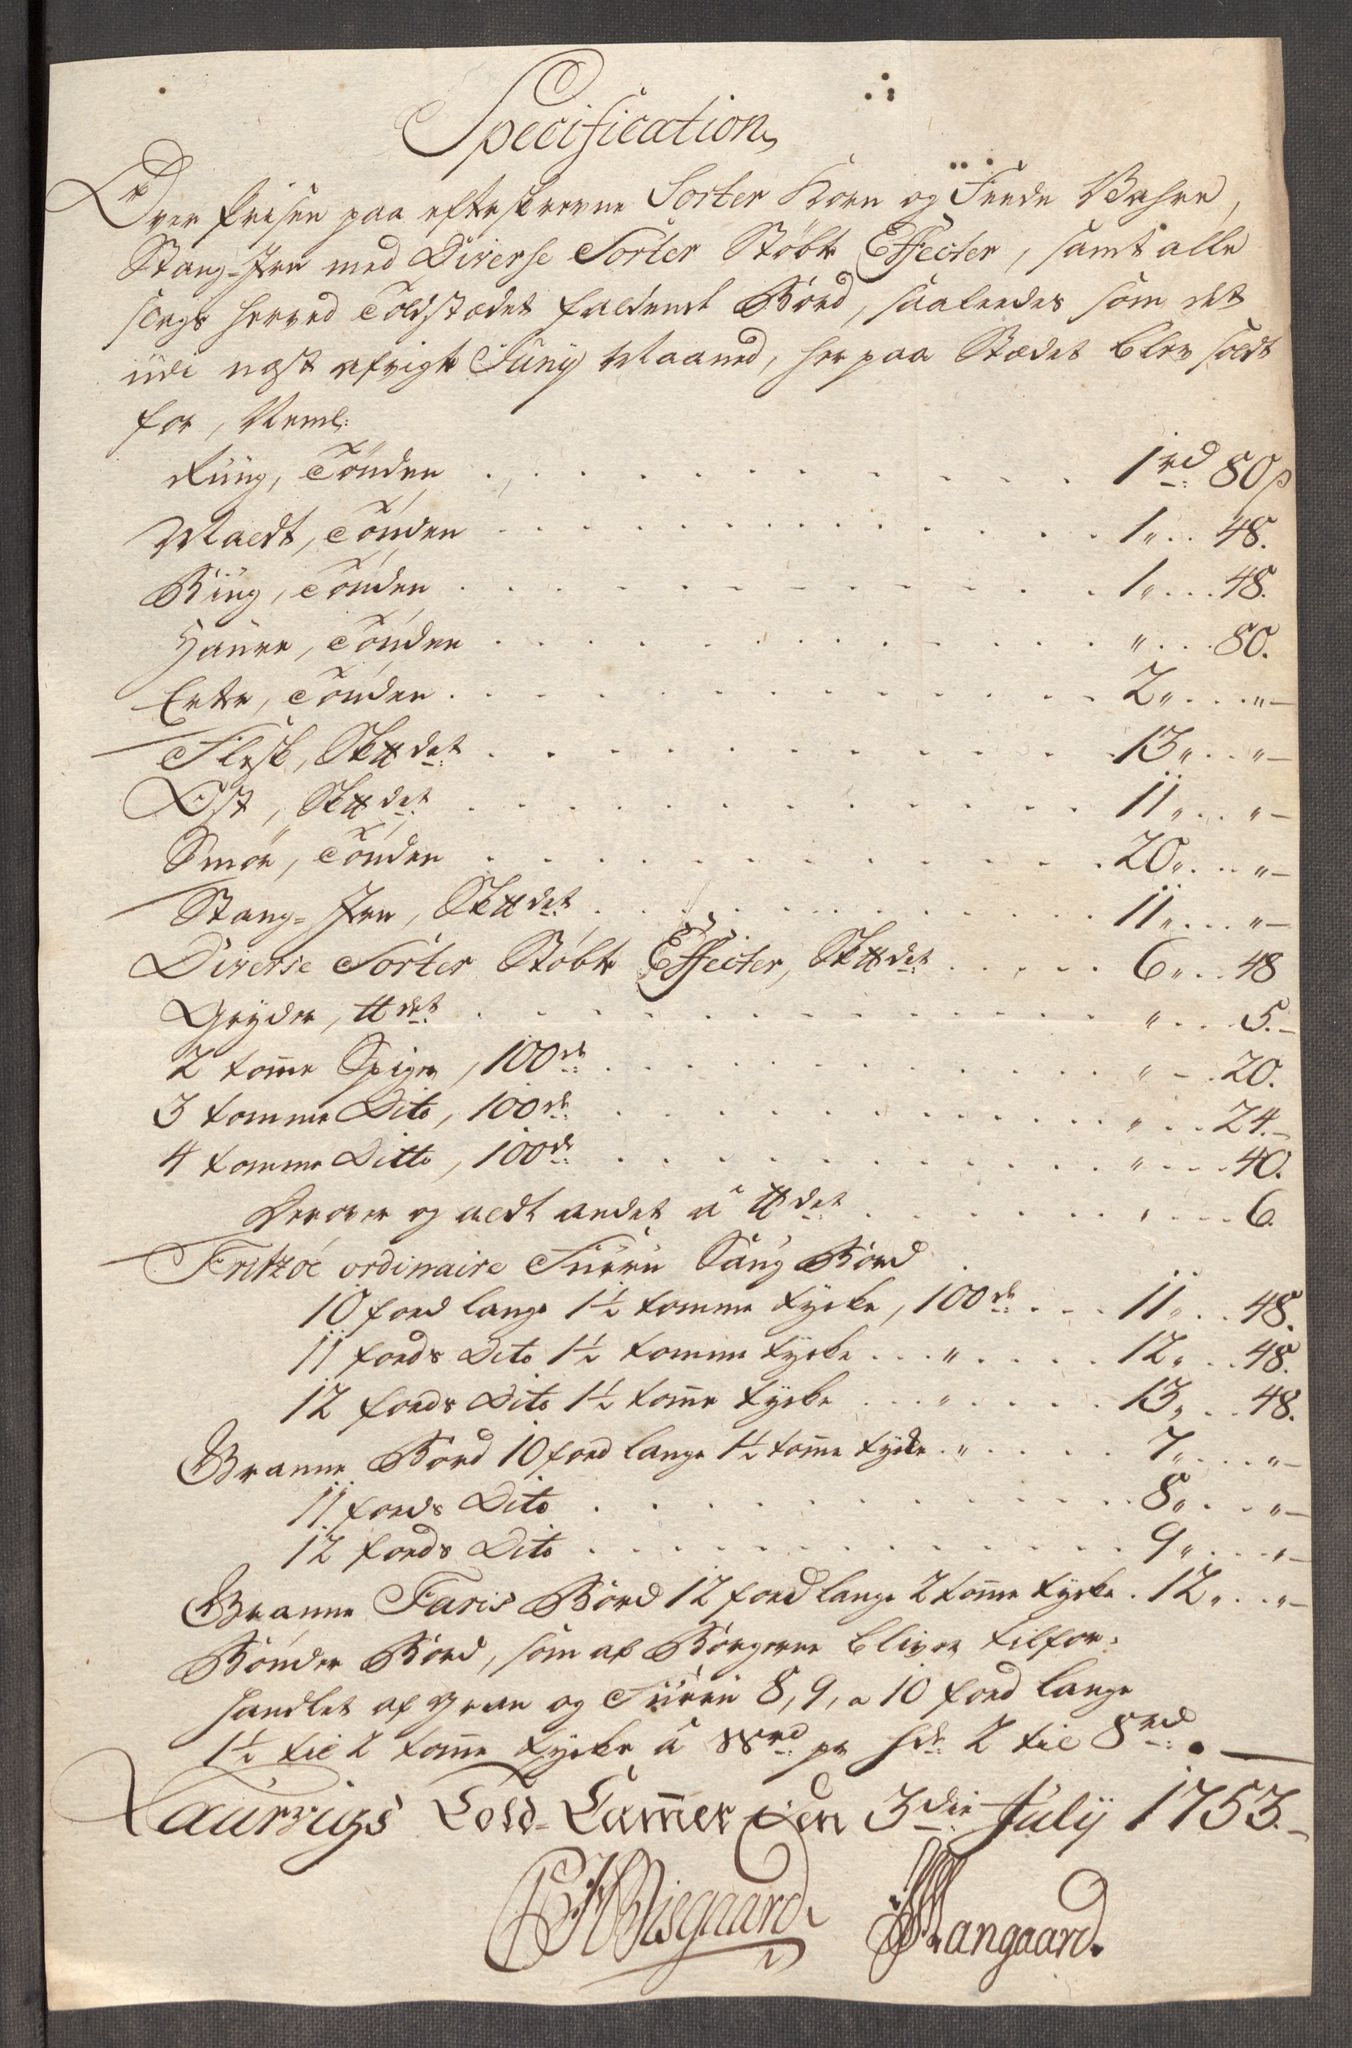 Specification
Over Prisen paa efterskrevne Sorter Korn og Feede Vahre,
Stang-Jern med Diverse Sorter Støbte Effecter, samt alle
slags herved Toldstædet faldende Bord, saaledes som det
udi næst afvigte Juny Maaned, her paa Stædet blev sadt
for, Neml:
Rüng, Tönden . . . 1 rd: 80 s
Maldt, Tönden . . . 1 „ . . 48.
Biüg, Tönden . . . 1 „ . . . 48.
Haure, Tönden . . . „ . . . 80.
Erter, Tönden . . . 2 „ . . . „ –
Flesk, Sk℔det . . . 13 „ . . „ –
Ost, Sk℔det . . . 11 „ . . . „ –
Smør, Tönden . . . 20 „ . . . „ –
Stang-Jern, Sk℔det . . . 11 „ . . . „ –
Diverse Sorter Støbte Effecter, Sk℔det . . . 6 „ . . 48
Gryder, ℔det . . . „ . . . 5. –
2 tom̄e Spiger, 100de: . . . „ – . 20.
3 tomme Dito, 100de: . . . „ . . 24. –
4 tomme Ditto, 100de: . . . „ . . . 40.
Derover og aldt andet â ℔det . . . „ . . . 6.
Fritzöe ordinaire Fürru Saug Bord
10 fod lange 1½ tomme tycke, 100de: . . . 11 „ . . 48.
11 fods Dito 1½ tomme tycke . . . „ . . . 12 „ . . 48.
12 fods Dito 1½ tom̄e tycke . . . „ . . . 13 „ . . 48.
Granne Bord 10 fod lange 1½ tom̄e tycke . „ . . . 7 „ . . . „ –
11 fods Dito . . . 8 „ . . . „ –
12 fods Dito . . . 9 „ . . . „ –
Granne Faris Bord 12 fod lange 2 tom̄e tycke . 12 „ . . „ –
Bönder Bord, som af Borgerne bliver tilfor-
handlet af gran og Fürru 8, 9, a 10 fod lange
1½ til 2 tom̄e tycke â rd: pr hde: 2 til 8 rd: . –
Laurvigs Told-Cam̄er den 3die July 1753. –
Wisgaard. Mangaard.